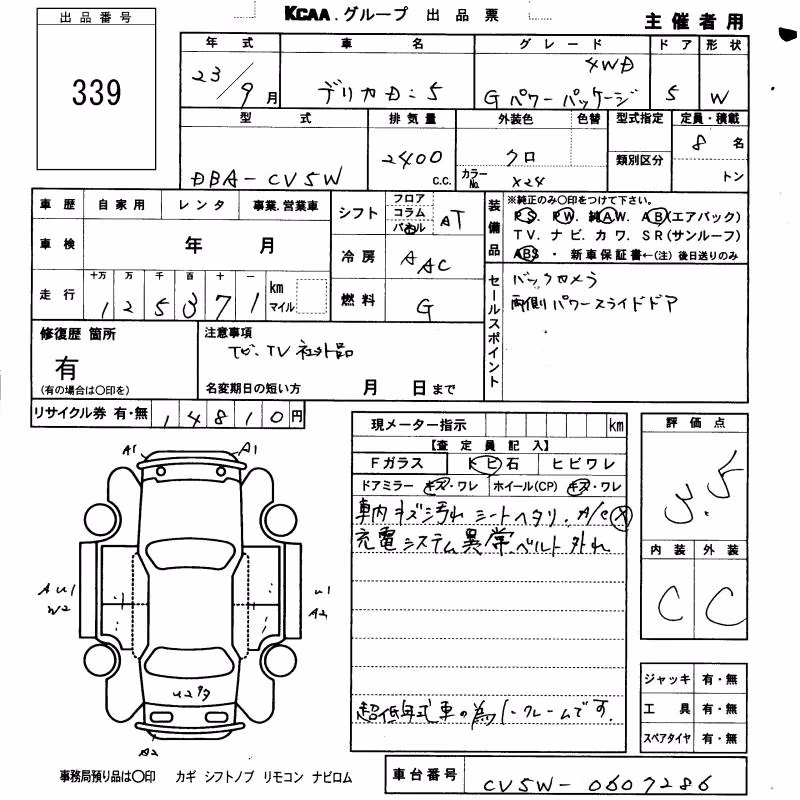 KCAA.グループ 出品票
主催者用
出品番号
339
年式 車名 グレード ドア 形状
23/9月 デリカD:5 Gパワーパッケージ 4WD 5 W
型式 排気量 外装色 色替 型式指定 定員・積載
DBA-CV5W 2400 C.C. クロ カラーNo. X24 類別区分 8名 トン
車歴 自家用 レンタ 事業.営業車
シフト フロア コラム パネル AT
装備品
※純正のみ〇印をつけて下さい。
PS. PW. 純AW. AB(エアバック)
TV. ナビ. カワ. SR(サンルーフ)
ABS ・ 新車保証書←(注) 後日送りのみ
車検 年 月
冷房 A AC
走行 十万 万 千 百 十 一 km マイル
125371
燃料 G
セールスポイント
バックカメラ
両側パワースライドドア
修復歴 箇所
有
(有の場合は〇印を)
注意事項
ナビ、TV 社外品
名変期日の短い方 月 日まで
リサイクル券 有・無 14810円
現メーター指示 km
評価点
3.5
【査定員記入】
Fガラス トビ石 ヒビワレ
ドアミラー キズ・ワレ ホイール(CP) キズ・ワレ
車内キズ汚れ シートヘタリ. A/C X
充電システム異常 ベルト外れ
超低年式車の為ノークレームです.
内装 外装
C C
A1 A1
AU1
W2
U1
A2
A2
ジャッキ 有・無
工具 有・無
スペアタイヤ 有・無
事務局預り品は〇印 カギ シフトノブ リモコン ナビロム
車台番号 CV5W-0607286